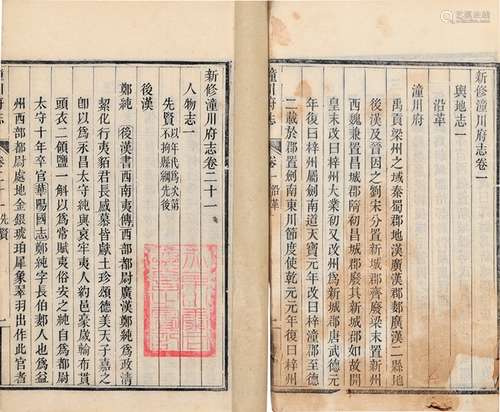 新修潼川府志卷一
輿地志一
沿革
潼川府
禹貢梁州之域秦蜀郡地漢廣漢郡郪廣漢二縣地
後漢及晉因之劉宋分置新城郡齊廢梁末置新州
西魏兼置昌城郡隋初昌城郡廢其新城郡如故開
皇末改曰梓州大業初又改州為新城郡唐武德元
年復曰梓州屬劍南道天寶元年改曰梓潼郡至德
二載於郡置劍南東川節度使乾元元年復曰梓州
潼川府志 卷一 沿革 一
新修潼川府志卷二十一
人物志一
先賢 以年代為次第
不拘縣綱先後
後漢
鄭純 後漢書西南夷傳西部都尉廣漢鄭純為政清
絜化行夷貊君長感慕皆獻土珍頌德美天子嘉之
卽以為永昌太守純與哀牢夷人約邑豪歲輸布貫
頭衣二領鹽一斛以為常賦夷俗安之純自為都尉
太守十年卒官華陽國志鄭純字長伯郪人也為益
州西部都尉處地金銀琥珀犀象翠羽出作此官者
潼川府志 卷二十一 先賢 一